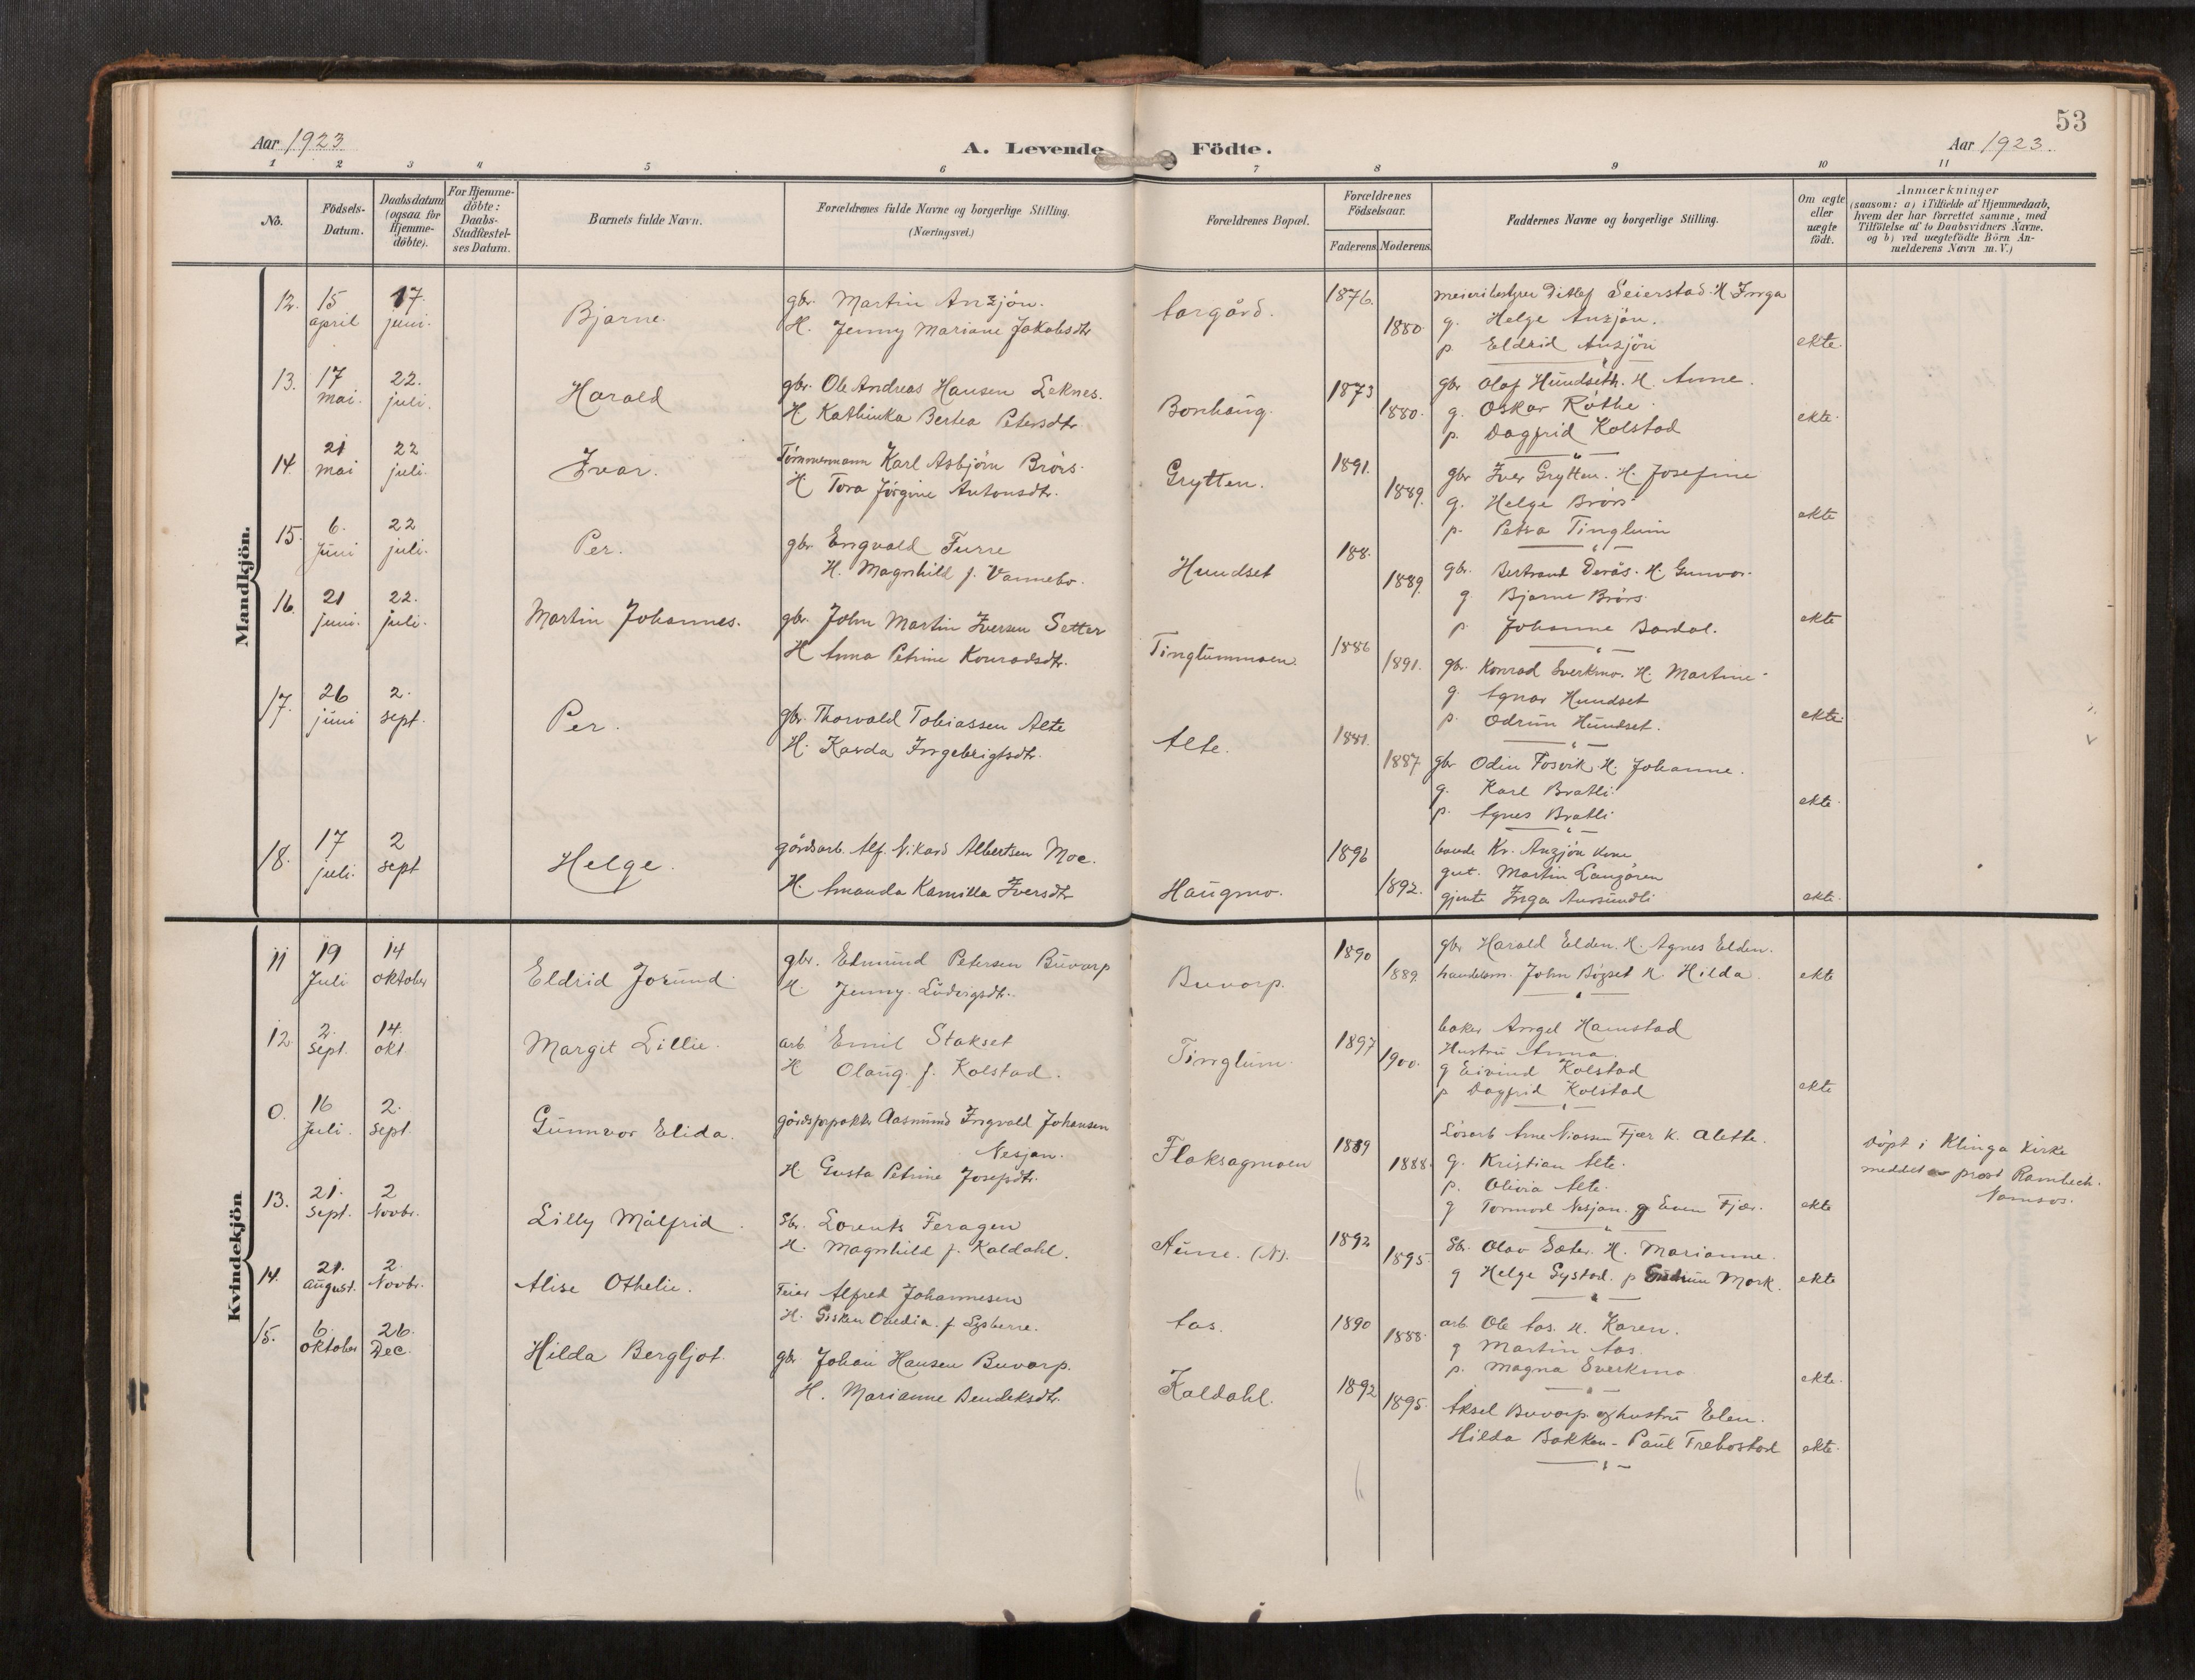 53
Aar 1923
A. Levende Födte.
Aar 1923.
1 2 3 4 5 6 7 8 9 10 11
No.
Födsels-Datum.
Daabsdatum (ogsaa for Hjemme-döbte).
For Hjemme-döbte: Daabs-Stadfæstel-ses Datum.
Barnets fulde Navn.
Forældrenes fulde Navne og borgerlige Stilling.
(Næringsvei.)
Forældrenes Bopæl.
Forældrenes Födselsaar.
Faderens. Moderens.
Faddernes Navne og borgerlige Stilling.
Om ægte eller uægte födt.
Anmærkninger
(saasom: a) i Tilfælde af Hjemmedaab,
hvem der har forrettet samme, med
Tilföielse af to Daabsvidners Navne,
og b) ved uægtefödte Börn An-
melderens Navn m. V.)
Mandkjön.
12. 15 april 17. juni. Bjarne.
gbr. Martin Anzjön.
H. Jenny Mariane Jakobsdtr
Aargård. 1876. 1880.
meieribestyrer Ditlef Seierstad. H Inga
g. Helge Anzjön.
p. Eldrid Anzjön
ekte.
13. 17 mai. 22. juli. Harald
gbr. Ole Andreas Hansen Leknes.
H. Kathinka Bertea Petersdtr.
Bonhaug. 1873 1880.
gbr Olaf Hundseth. H. Anne.
g. Oskar Röthe.
p. Dagfrid Kolstad
ekte.
14. 21 mai 22 juli. Ivar.
Tömmermann Karl Asbjörn Brörs.
H. Tora Jörgine Antonsdtr.
Grytten. 1891. 1889.
gbr Iver Grytten. H. Josefine
g. Helge Brörs
p. Petra Tinglum
ekte
15. 6. juni 22 juli. Per.
gbr. Engvald Furre
H. Magnhild f. Vannebo.
Hundset 188. 1889.
gbr. Bertrand Deraas. H. Gunvor.
g. Bjarne Brörs.
p. Johanne Bardal.
ekte
16. 21 juni. 22. juli. Martin Johannes.
gbr. John Martin Iversen Setter
H Anna Petrine Konradsdtr.
Tinglummoen. 1886 1891.
gbr. Konrad Sverkmo. H. Martine
g. Agnar Hundset
p. Odrun Hundset.
ekte.
17. 26 juni 2. sept. Per.
gbr. Thorvald Tobiassen Alte
H. Karda Ingebrigtsdtr.
Alte. 1881. 1887
gbr Odin Fosvik. H. Johanne.
g. Karl Bratli
p. Agnes Bratli
ekte.
18. 17 juli. 2 sept Helge.
gårdsarb. Alf. Nikard Albertsen Moe.
H. Amanda Kamilla Iversdtr
Haugmo. 1896 1892.
bonde Kr. Anzjön kone
gut. Martin Langåren
gjente Inga Aursundli
ekte.
Kvindekjön
11 19 Juli 14 oktober Eldrid Jorund.
gbr. Edmund Petersen Buvarp
H. Jenny Ludvigsdtr.
Buvarp. 1890 1889.
gbr Harald Elden. H. Agnes Elden.
handelsm. John Bögset H. Hilda.
ekte
12 2. sept. 14. okt. Margit Lillie.
arb. Emil Stakset
H Olaug. f. Kolstad.
Tinglum. 1897 1900.
baker Angel Hamstad
Hustru Anna.
g Eivind Kolstad
p Dagfrid Kolstad
ekte
0. 16 Juli. 2. Sept Gunnvor Elida.
gårdsforpakter Aasmund Ingvald Johansen
Nesjan.
H. Gusta Petrine Josefsdtr.
Flaksagmoen 1889 1888.
Lösarb Arne Niassen Fjær K. Alette.
g. Kristian Alte.
p. Olivia Alte.
g Tormod Nesjan. g Even Fjær.
ekte
Döpt i Klinga kirke
meddet av prost Rambech.
Namsos.
13. 21. sept. 2 Novbr. Lilly Målfrid.
Sbr. Lorents Feragen
H. Magnhild f. Kaldahl.
Aune. (N). 1892 1895.
Sbr. Olav Sæter. H. Marianne.
g Helge Systad. p Gudrun Mork.
ekte
14. 21. august. 2. Novbr. Alise Othelie.
Feier Alfred Johannesen
H. Gisken Ovedia. f
Aas. 1890 1888.
arb. Ole Aas. H. Karen.
g Martin Aas.
p. Magna Sverkmo
ekte.
15. 6. oktober 26. Dec. Hilda Bergljot.
gbr Johan Hansen Buvarp.
H. Marianne Bendeksdtr.
Kaldahl. 1892 1895.
Aksel Buvarp. og hustru Elen.
Hilda Bakken - Paul Trebostad
ekte.